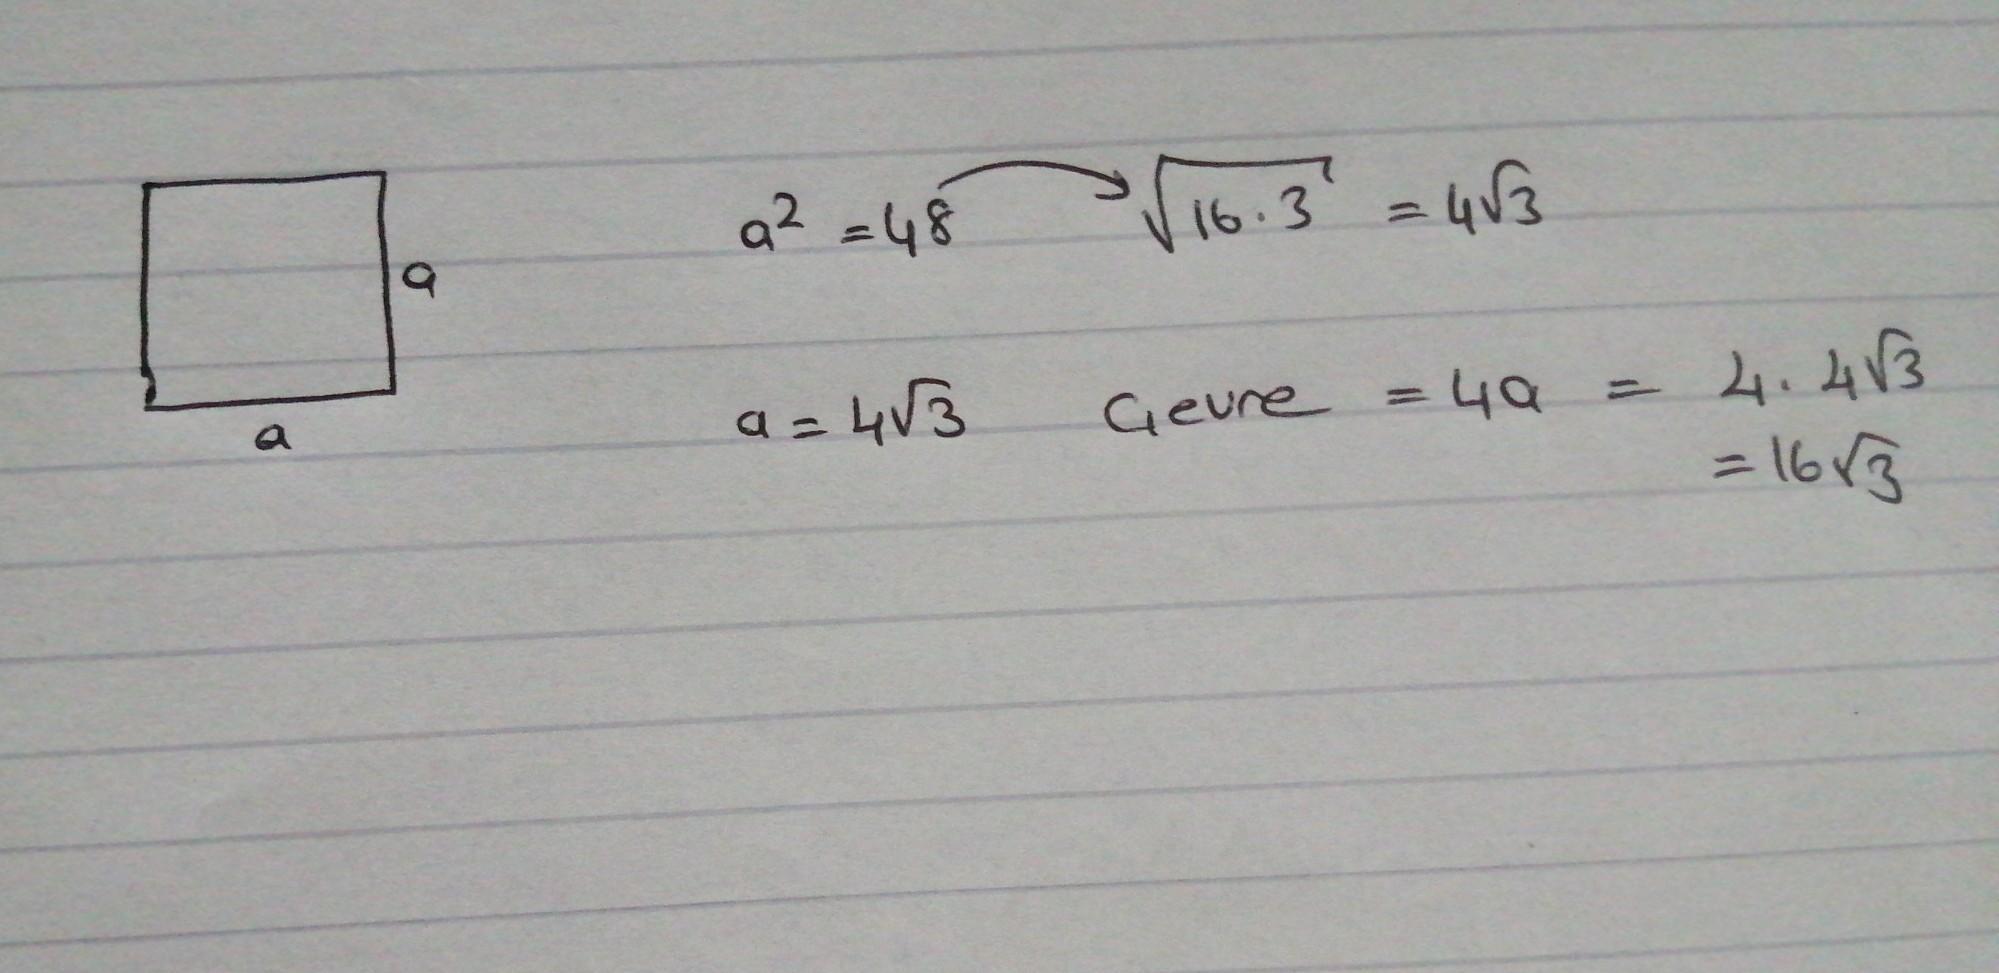 a² = 48 → √16·3 = 4√3
a
a = 4√3 Çevre = 4a = 4·4√3
a
= 16√3